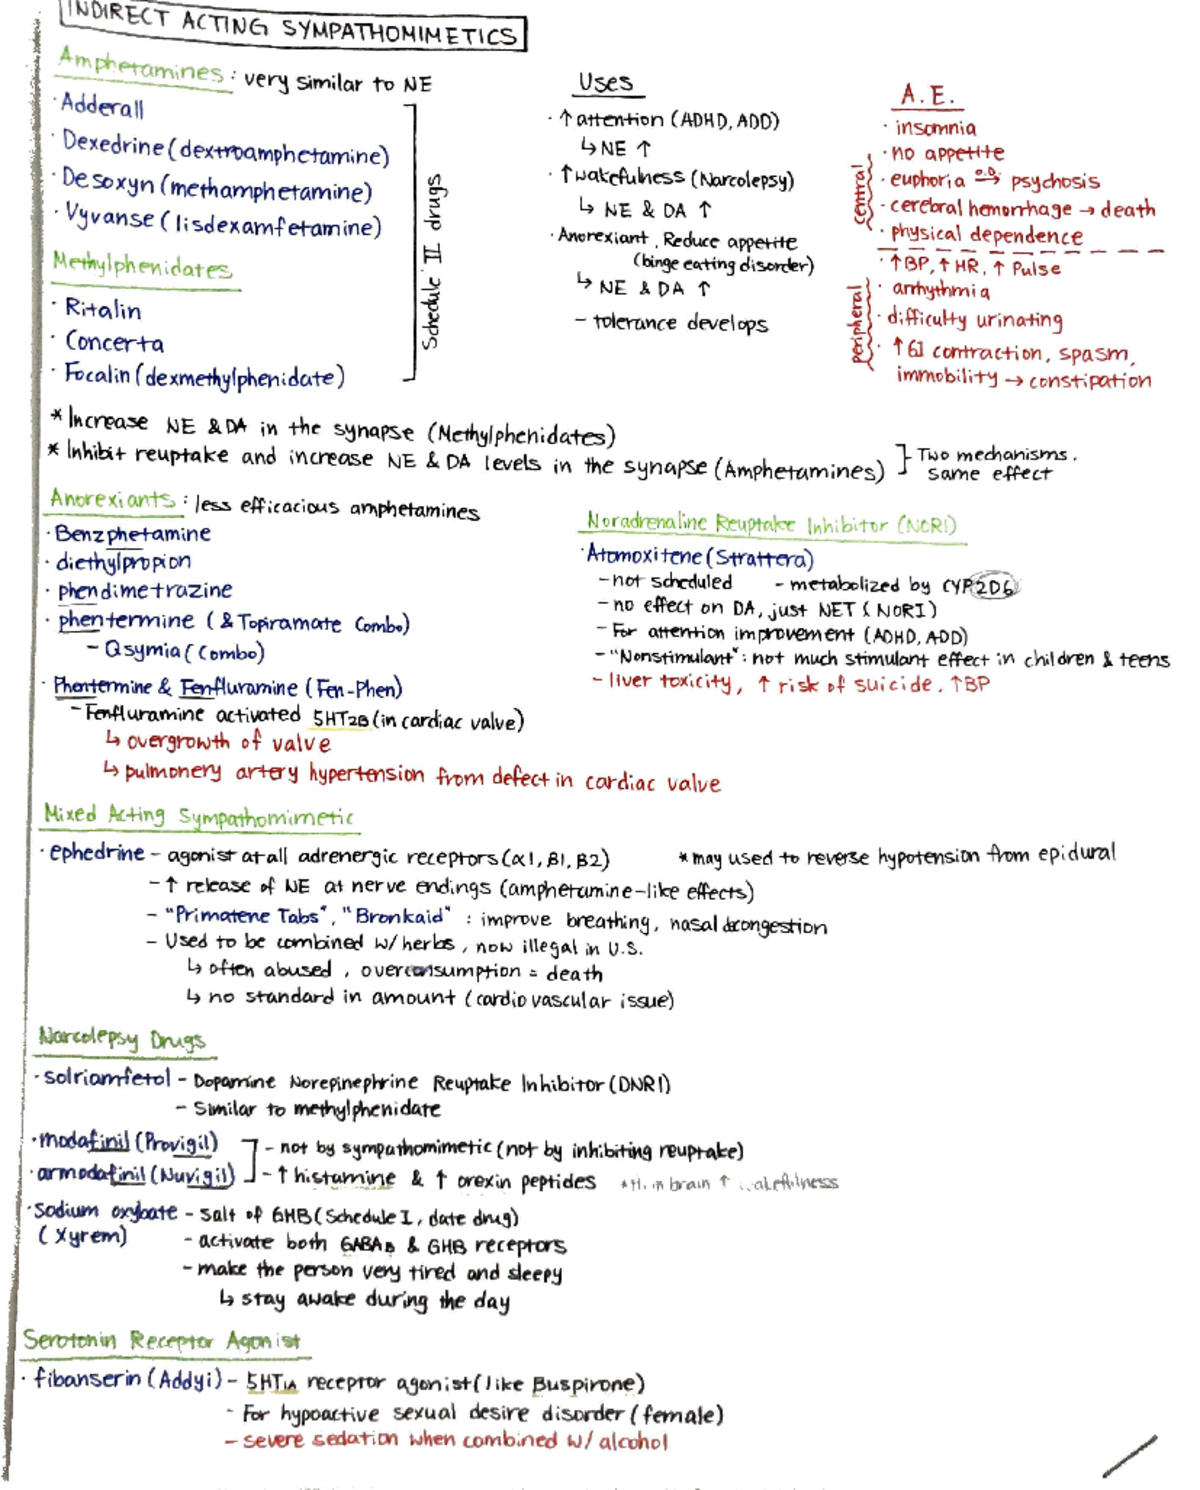 INDIRECT ACTING SYMPATHOMIMETICS
Amphetamines : very similar to NE
· Adderall
· Dexedrine (dextroamphetamine)
· Desoxyn (methamphetamine)
· Vyvanse (lisdexamfetamine)
Methylphenidates
· Ritalin
· Concerta
· Focalin (dexmethylphenidate)
Schedule II drugs
Uses
· ↑ attention (ADHD, ADD)
↳ NE ↑
· ↑ wakefulness (Narcolepsy)
↳ NE & DA ↑
· Anorexiant, Reduce appetite
(binge eating disorder)
↳ NE & DA ↑
- tolerance develops
A.E.
· insomnia
· no appetite
· euphoria O.D.→ psychosis
· cerebral hemorrhage → death
· physical dependence
central
· ↑BP, ↑HR, ↑ Pulse
· arrhythmia
· difficulty urinating
· ↑GI contraction, spasm,
immobility → constipation
peripheral
* Increase NE & DA in the synapse (Methylphenidates)
* Inhibit reuptake and increase NE & DA levels in the synapse (Amphetamines)
Two mechanisms.
same effect
Anorexiants : less efficacious amphetamines
· Benzphetamine
· diethylpropion
· phendimetrazine
· phentermine (& Topiramate Combo)
- Qsymia (Combo)
· Phentermine & Fenfluramine (Fen-Phen)
- Fenfluramine activated 5HT2B (in cardiac valve)
↳ overgrowth of valve
↳ pulmonery artery hypertension from defect in cardiac valve
Noradrenaline Reuptake Inhibitor (NORI)
· Atomoxitene (Strattera)
- not scheduled - metabolized by CYP2D6
- no effect on DA, just NET (NORI)
- For attention improvement (ADHD, ADD)
- "Nonstimulant": not much stimulant effect in children & teens
- liver toxicity, ↑ risk of suicide, ↑BP
Mixed Acting Sympathomimetic
· ephedrine - agonist at all adrenergic receptors (α1, β1, β2) * may used to reverse hypotension from epidural
- ↑ release of NE at nerve endings (amphetamine-like effects)
- "Primatene Tabs", "Bronkaid" : improve breathing, nasal decongestion
- Used to be combined w/ herbs, now illegal in U.S.
↳ often abused, overconsumption = death
↳ no standard in amount (cardiovascular issue)
Narcolepsy Drugs
· solriamfetol - Dopamine Norepinephrine Reuptake Inhibitor (DNRI)
- Similar to methylphenidate
· modafinil (Provigil)
· armodafinil (Nuvigil)
- not by sympathomimetic (not by inhibiting reuptake)
- ↑ histamine & ↑ orexin peptides * in brain ↑ wakefulness
· sodium oxybate - salt of GHB (Schedule I, date drug)
(Xyrem) - activate both GABAB & GHB receptors
- make the person very tired and sleepy
↳ stay awake during the day
Serotonin Receptor Agonist
· fibanserin (Addyi) - 5HT1A receptor agonist (like Buspirone)
- For hypoactive sexual desire disorder (female)
- severe sedation when combined w/ alcohol